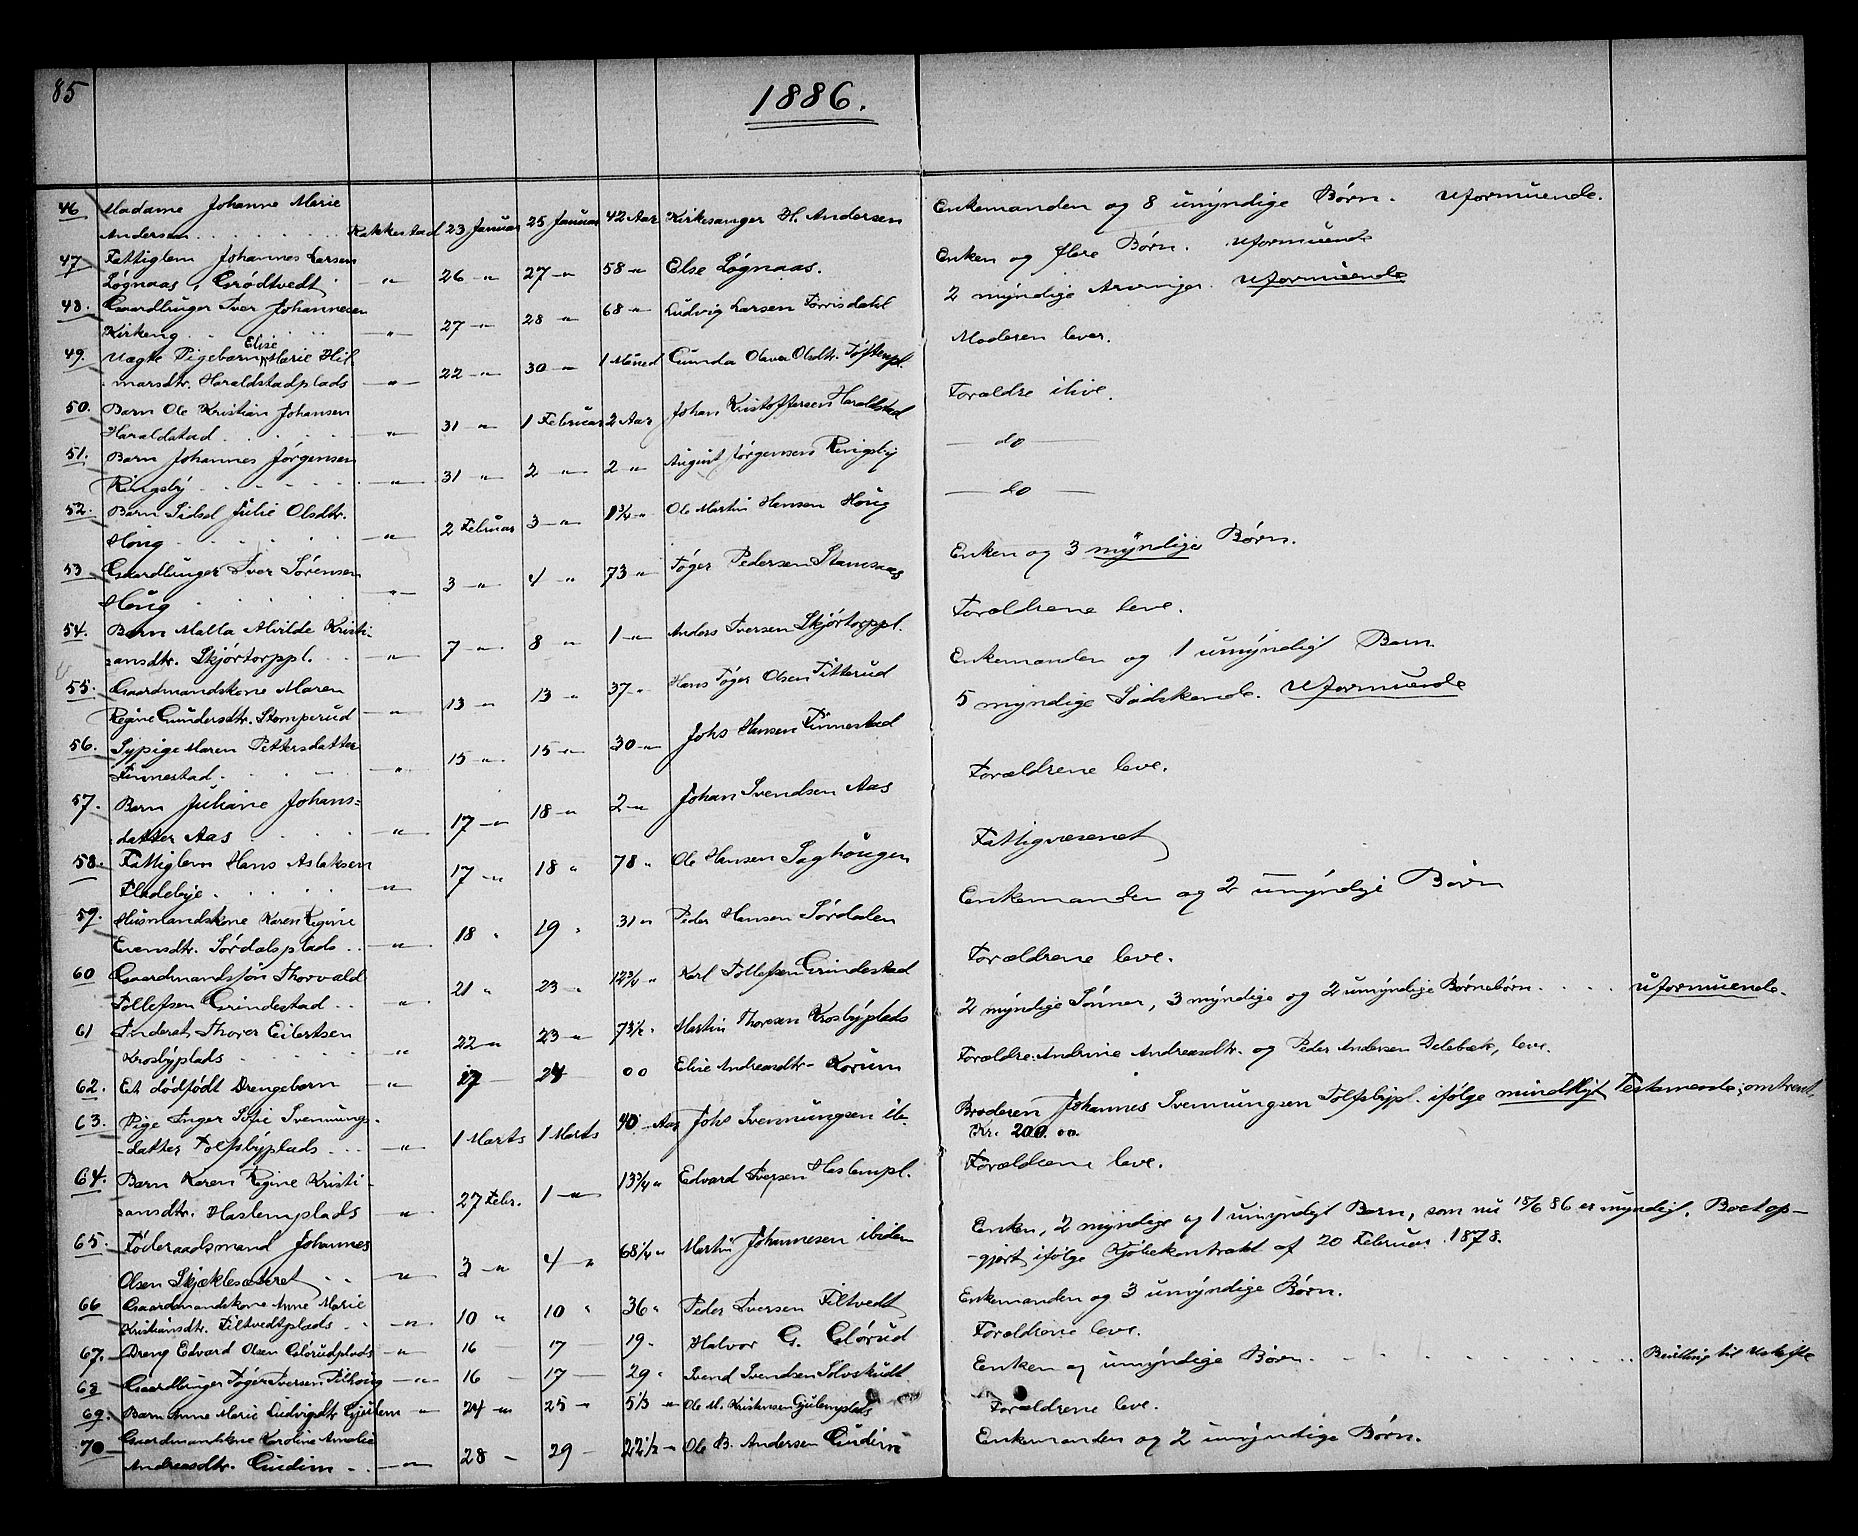 85
1886.
46 Madame Johanne Marie
Andersen . . . . . . . Rakkestad 23 Januar 25 Januar 42 Aar Kirkesanger H. Andersen Enkemanden og 8 umyndige Børn. Uformuende.
47 Fattiglem Johannes Larsen
Løgnaas, Grødtvedt . — " — 26 — " 27 — " 58 — " Else Løgnaas. Enken og flere Børn. Uformuende
48. Gaardbruger Iver Johannesen
Kirkeng . . . . — " — 27 — " 28 — " 68 — " Ludvig Larsen 2 myndige Arvinger. Uformuende
49. Uægte Pigebarn Elise Marie Hil-
marsdtr. Haraldstadplads — " — 22 — " 30 — " 1 Maaned Gunda Olava Olsdtr. Moderen lever.
50. Barn Ole Kristian Johansen
Haraldstad . . . . — " — 31 — " 1 Februar 2 Aar Johan Kristoffersen Haraldstad Forældre ilive.
51. Barn Johannes Jørgensen
Ringsby . . . . . — " — 31 — " 2 — " 2 — " August Jørgensen Ringsby — do —
52. Barn Sidsel Julie Olsdtr.
Houg . . . . . — " — 2 Februar 3 — " 1 3/4 — " Ole Martin Hansen Houg — do —
53 Gaardbruger Iver Sørensen
Houg . . . . . — " — 3 — " 4 — " 73 — " Tøger Pedersen Stamsaas Enken og 3 myndige Børn.
54. Barn Malla Alvilde Kristi-
ansdtr. Skjørtorppl. . . — " — 7 — " 8 — " 1 — " Anders Iversen Skjørtorppl. Forældrene leve.
55. Gaardmandskone Maren
Regine Gundersdtr. Stomperud — " — 13 — " 13 — " 37 — " Hans Tøger Olsen Titterud Enkemanden og 1 umyndigt Barn
56. Sypige Maren Pettersdatter
Finnestad . . . . — " — 15 — " 15 — " 30 — " Johs Hansen Finnestad 5 myndige Sødskende. Uformuende
57. Barn Juliane Johans=
datter Aas . . . . — " — 17 — " 18 — " 2 — " Johan Svendsen Aas Forældrene leve.
58. Fattiglem Hans Aslaksen
Fladebye . . . . . — " — 17 — " 18 " 78 " Ole Hansen Saghougen Fattigvæsenet
59. Husmandskone Karen Regine
Evensdtr. Sørdalsplads . . — " — 18 " 19 " 31 " Peder Hansen Sørdalen Enkemanden og 2 umyndige Børn
60 Gaardmandssøn Thorvald
Tollefsen Grindestad . . — " — 21 " 23 — " 12 3/4 " Karl Tollefsen Grindestad Forældrene leve.
61 Inderst Thorer Eilertsen
Krosbyplads . . . . — " — 22 — " 23 — " 73 1/2 " Martin Thoresen Krosbyplads 2 myndige Sønner, 3 myndige og 2 umyndige Børnebørn . . . . uformuende.
62. Et dødfødt Drengebarn — " — 17 — 24 — 00 Elise Andreasdtr. Korum Forældre: Andrine Andreasdtr. og Peder Andersen Delebæk, leve.
63. Pige Inger Sofie Svennungs-
-datter Tolfsbyplads . . . — " — 1 Marts 1 Marts 40 — Aar Johs Svennungsen ib. Broderen Johannes Svennungsen Tolfsbypl. ifølge mundtligt Testamente; omtrent
Kr. 200.00.
64. Barn Karen Regine Kristi-
ansdtr. Haslemplads — " — 27 Febr. 1 — " 13 3/4 " Edvard Iversen Haslempl. Forældrene leve.
65. Føderaadsmand Johannes
Olsen Skjæklesæteret . . — " — 3 — " 4 — " 68 1/4 " Martin Johannesen ibidem Enken, 2 myndige og 1 umyndigt Barn, som nu 18/6 86 er myndigt. Boet op-
-gjort ifølge Kjøbekontrakt af 20 Februar 1878.
66 Gaardmandskone Anne Marie
Kristiansdtr. Filtvedtplads . . — " — 10 " 10 " 36 " Peder Iversen Filtvedt Enkemanden og 3 umyndige Børn.
67. Dreng Edvard Olsen Glørudplads — " — 16 — 17 19 " Halvor G. Glørud Forældrene leve.
68 Gaardbruger Tøger Iversen — " — 16 — 17 — 29 " Svend Svendsen Enken og umyndige Børn . . . . . . . . . . . . Bevilling til
69. Barn Anne Marie Ludvigsdtr. Gjulem — " 24 — " 25 — " 5 1/3 — " Ole M. Kristensen Gjulemplads Forældrene leve.
70 Gaardmandskone Karoline Amalie
Andreasdtr. Gudim . . — " — 28 — 29 — 22 1/2 — " Ole B. Andersen Gudim Enkemanden og 2 umyndige Børn.